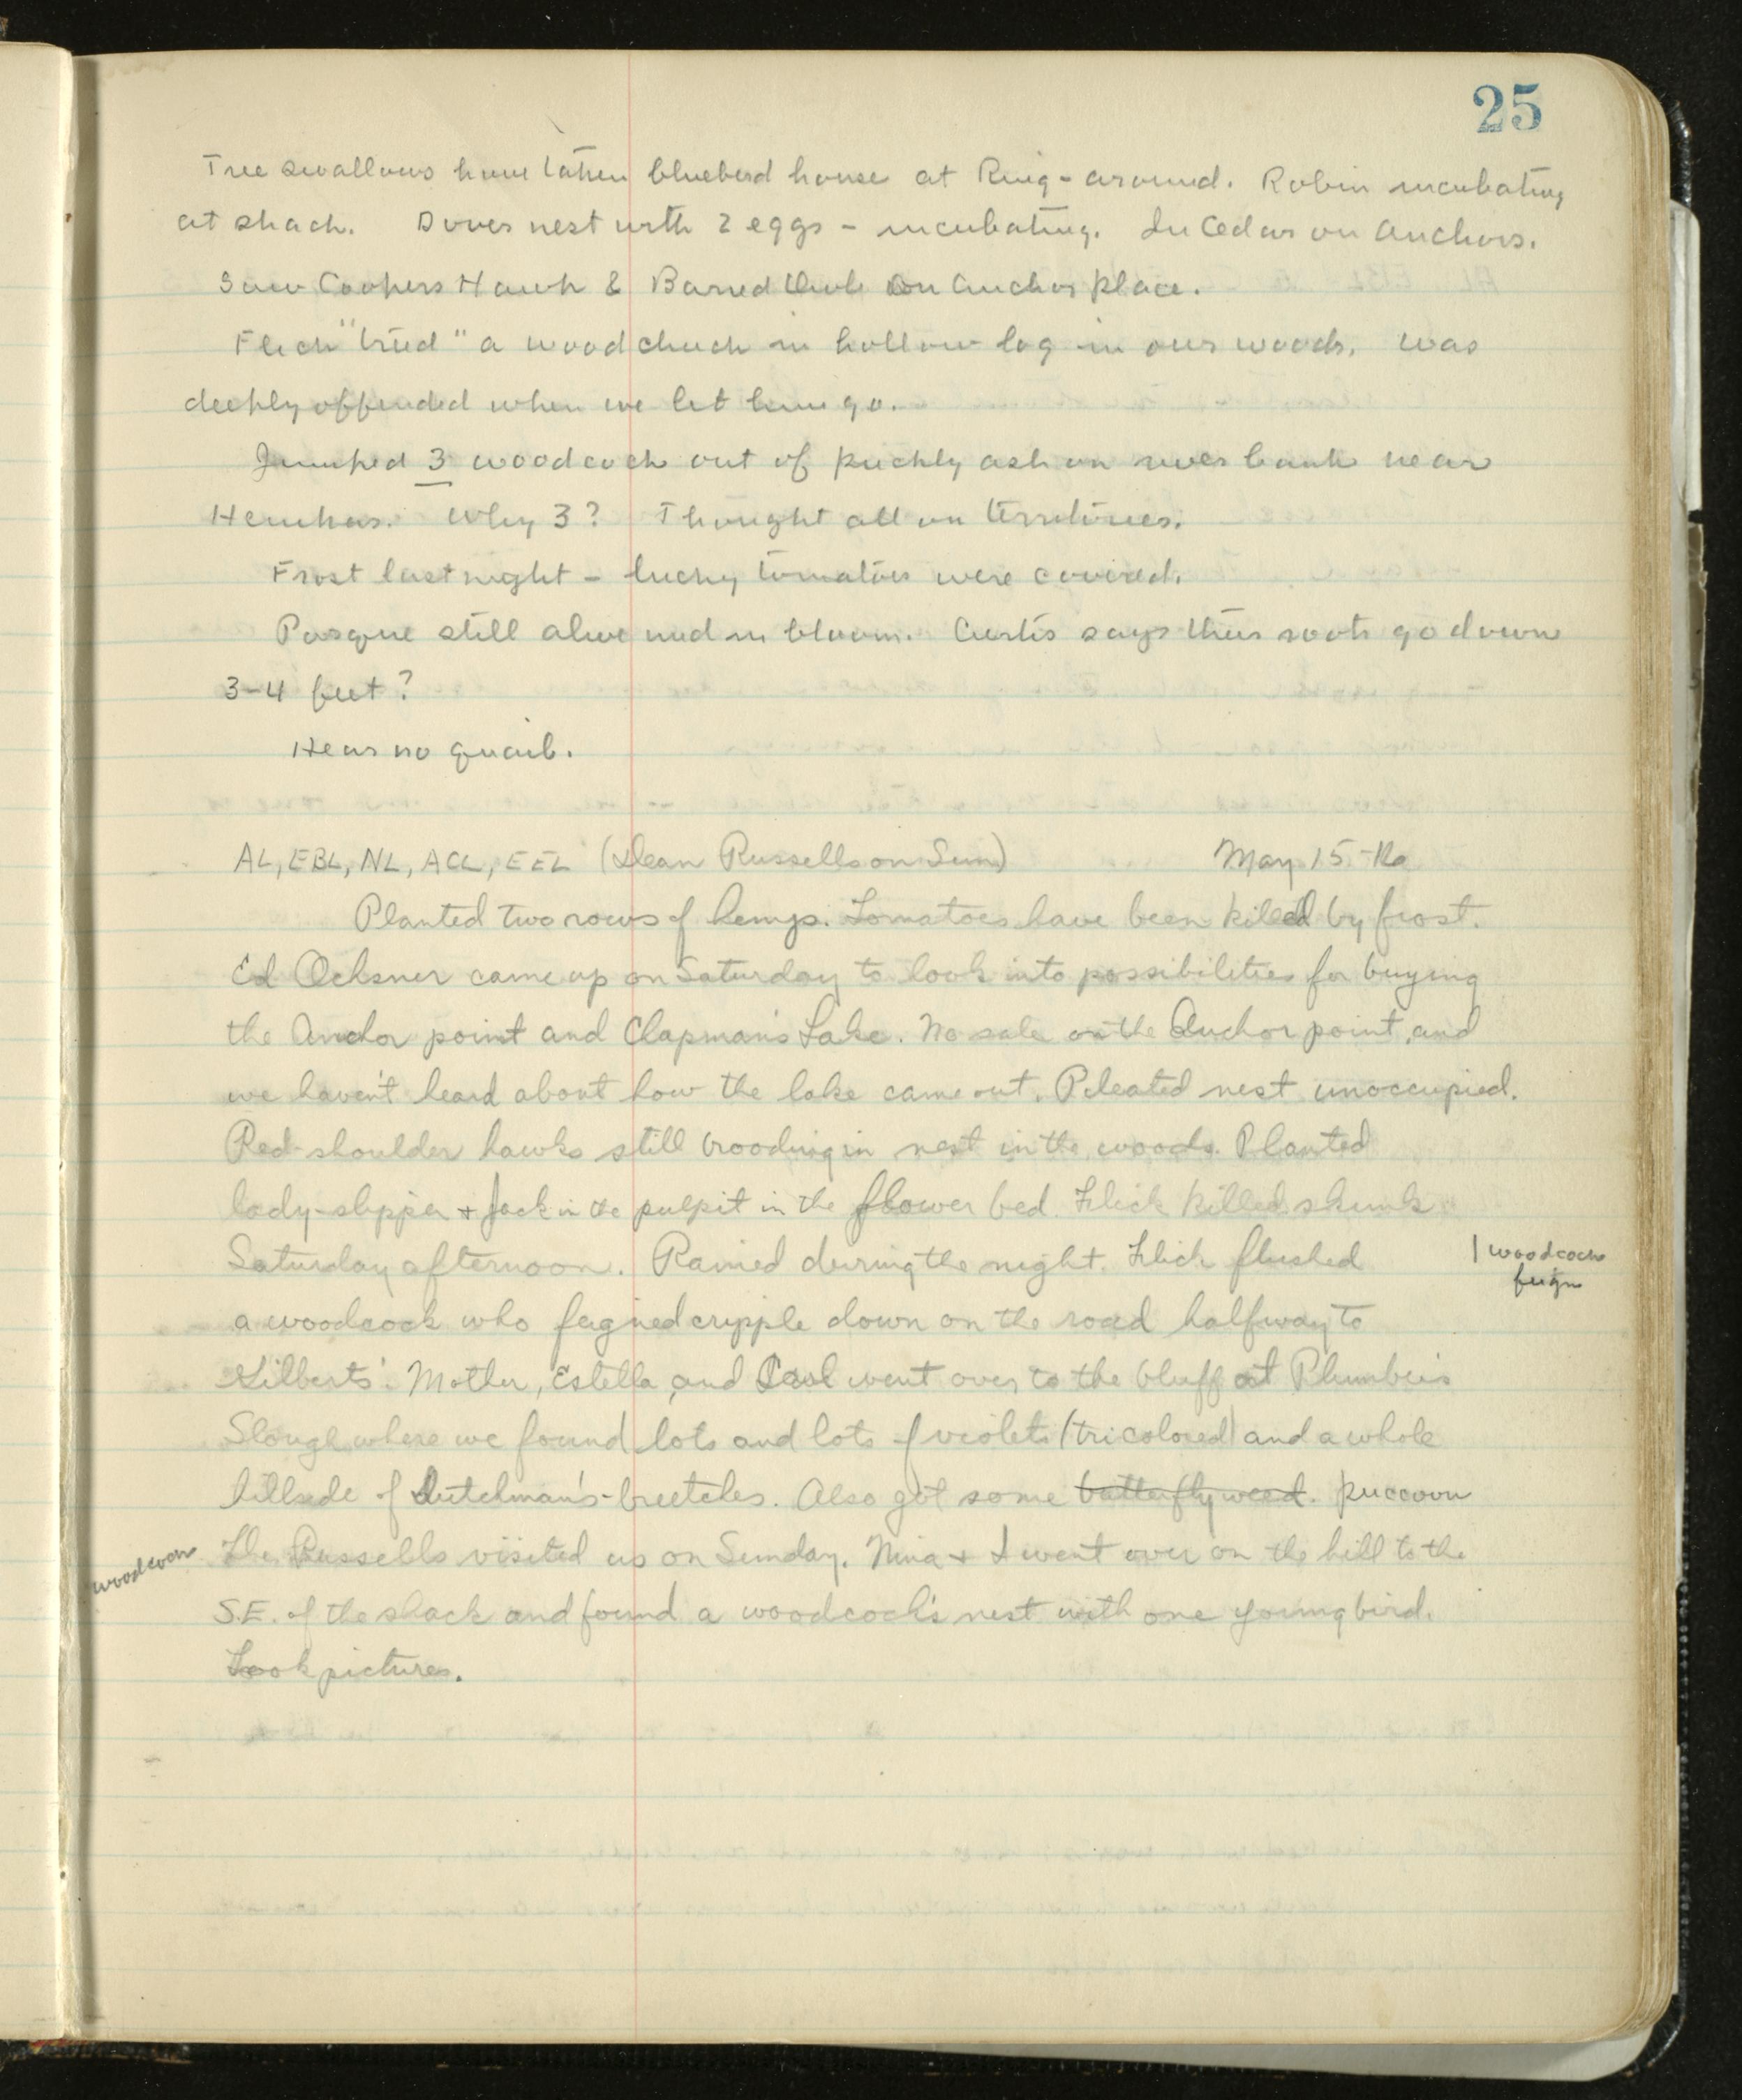 25
Tree swallows have taken bluebird house at Ring-around. Robin incubating
at shack. Doves nest with 2 eggs - incubating. In Cedar on Anchors.
Saw Coopers Hawk & Barred Owl on Anchor place.
Flick "treed" a woodchuck in hollow log in our woods. was
deeply offended when we let him go.
Jumped 3 woodcock out of prickly ash on river bank near
Why 3? Thought all on territories.
Frost last night - lucky tomatoes were covered.
Pasque still alive and in bloom. Curtis says their roots go down
3-4 feet?
Hear no quail.
AL, EBL, NL, ACL, EEL (Dean Russells on Sun) May 15-16
Planted two rows of hemp. Tomatoes have been killed by frost.
Ed Ochsner came up on Saturday to look into possibilities for buying
the Anchor point and Clapman's Lake. No sale on the Anchor point, and
we haven't heard about how the lake came out. Pileated nest unoccupied.
Red-shoulder hawks still brooding in nest in the woods. Planted
lady-slipper + Jack in the pulpit in the flower bed. Flick killed skunk
Saturday afternoon. Rained during the night. Flick flushed
1 woodcock
feign
a woodcock who feigned cripple down on the road halfway to
Gilberts'. Mother, Estella, and Carl went over to the bluff at Plumber's
Slough where we found lots and lots of violets (tricolored) and a whole
hillside of Dutchman's-breetches. Also got some butterflyweed. puccoon
woodcock
The Russells visited us on Sunday. Nina + I went over on the hill to the
S.E. of the shack and found a woodcock's nest with one young bird.
Took pictures.